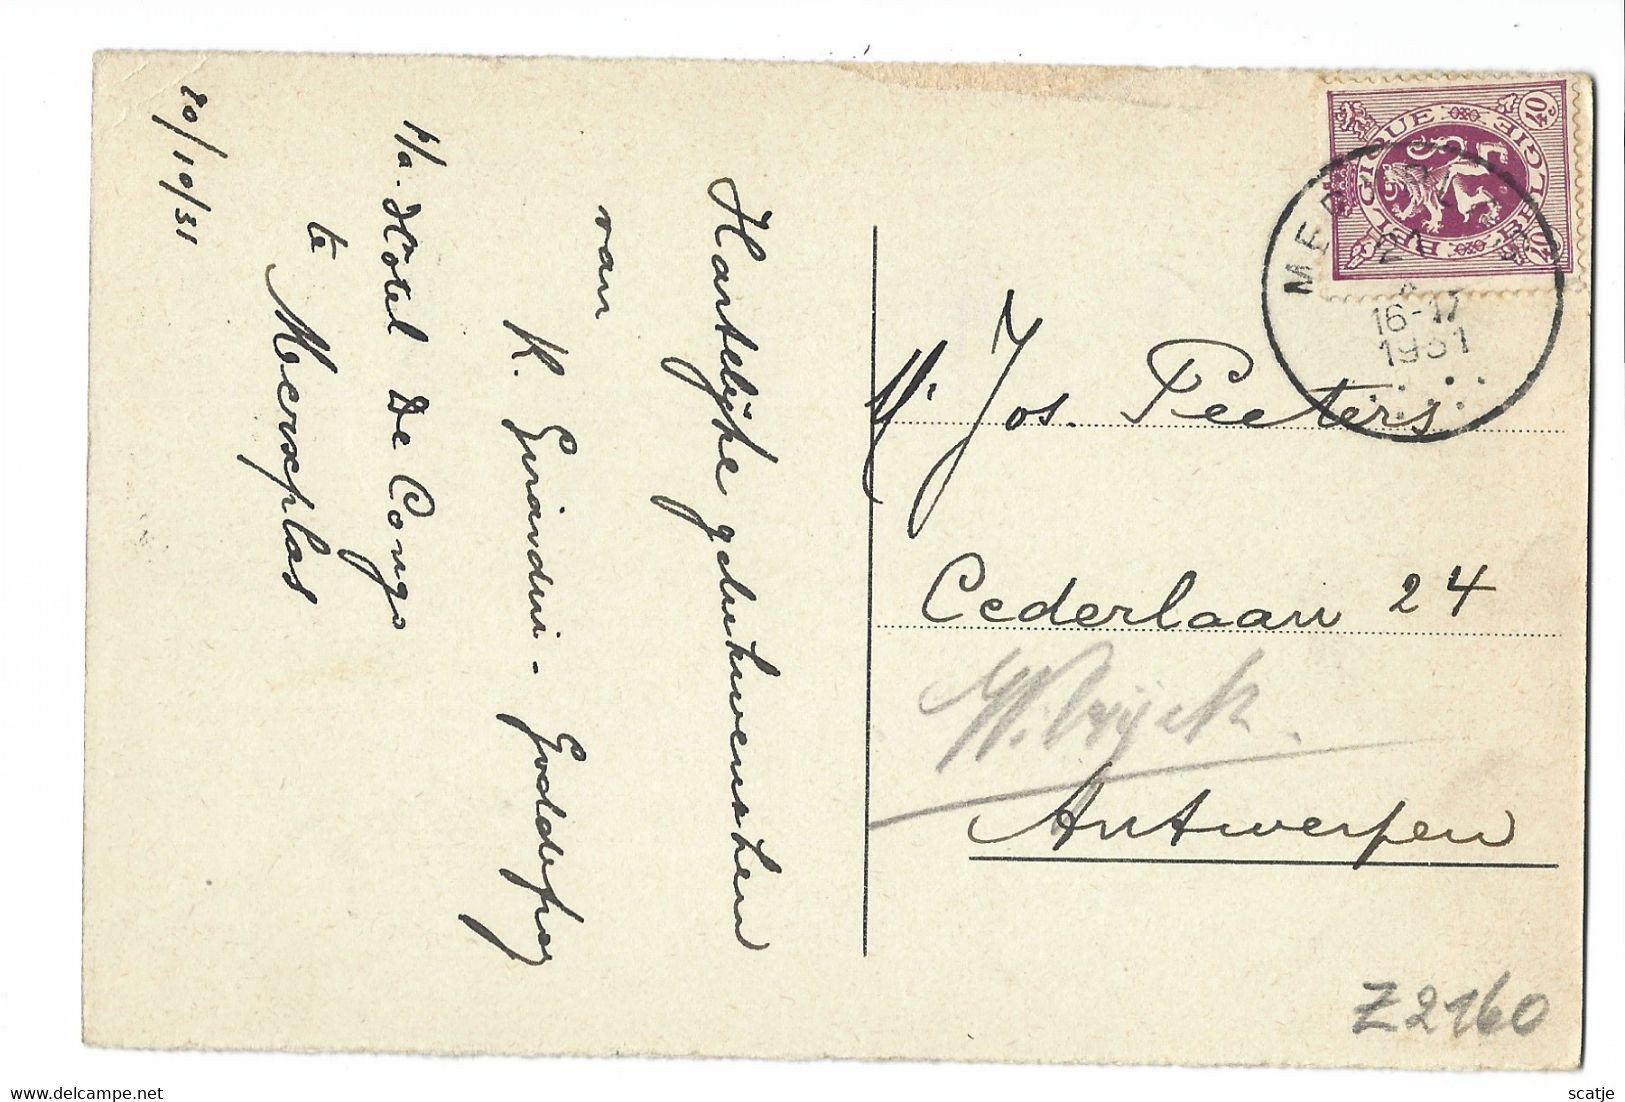 Hartelijke gelukwenschen
van
K.
H/a. Hotel De Congo
te Merxplas
20/10/31
Mr Jos. Peeters
Cederlaan 24
Wilrijck.
Antwerpen
BELGIQUE BELGIE
40c
16-17
1931
Z2160
www.delcampe.net
scatje